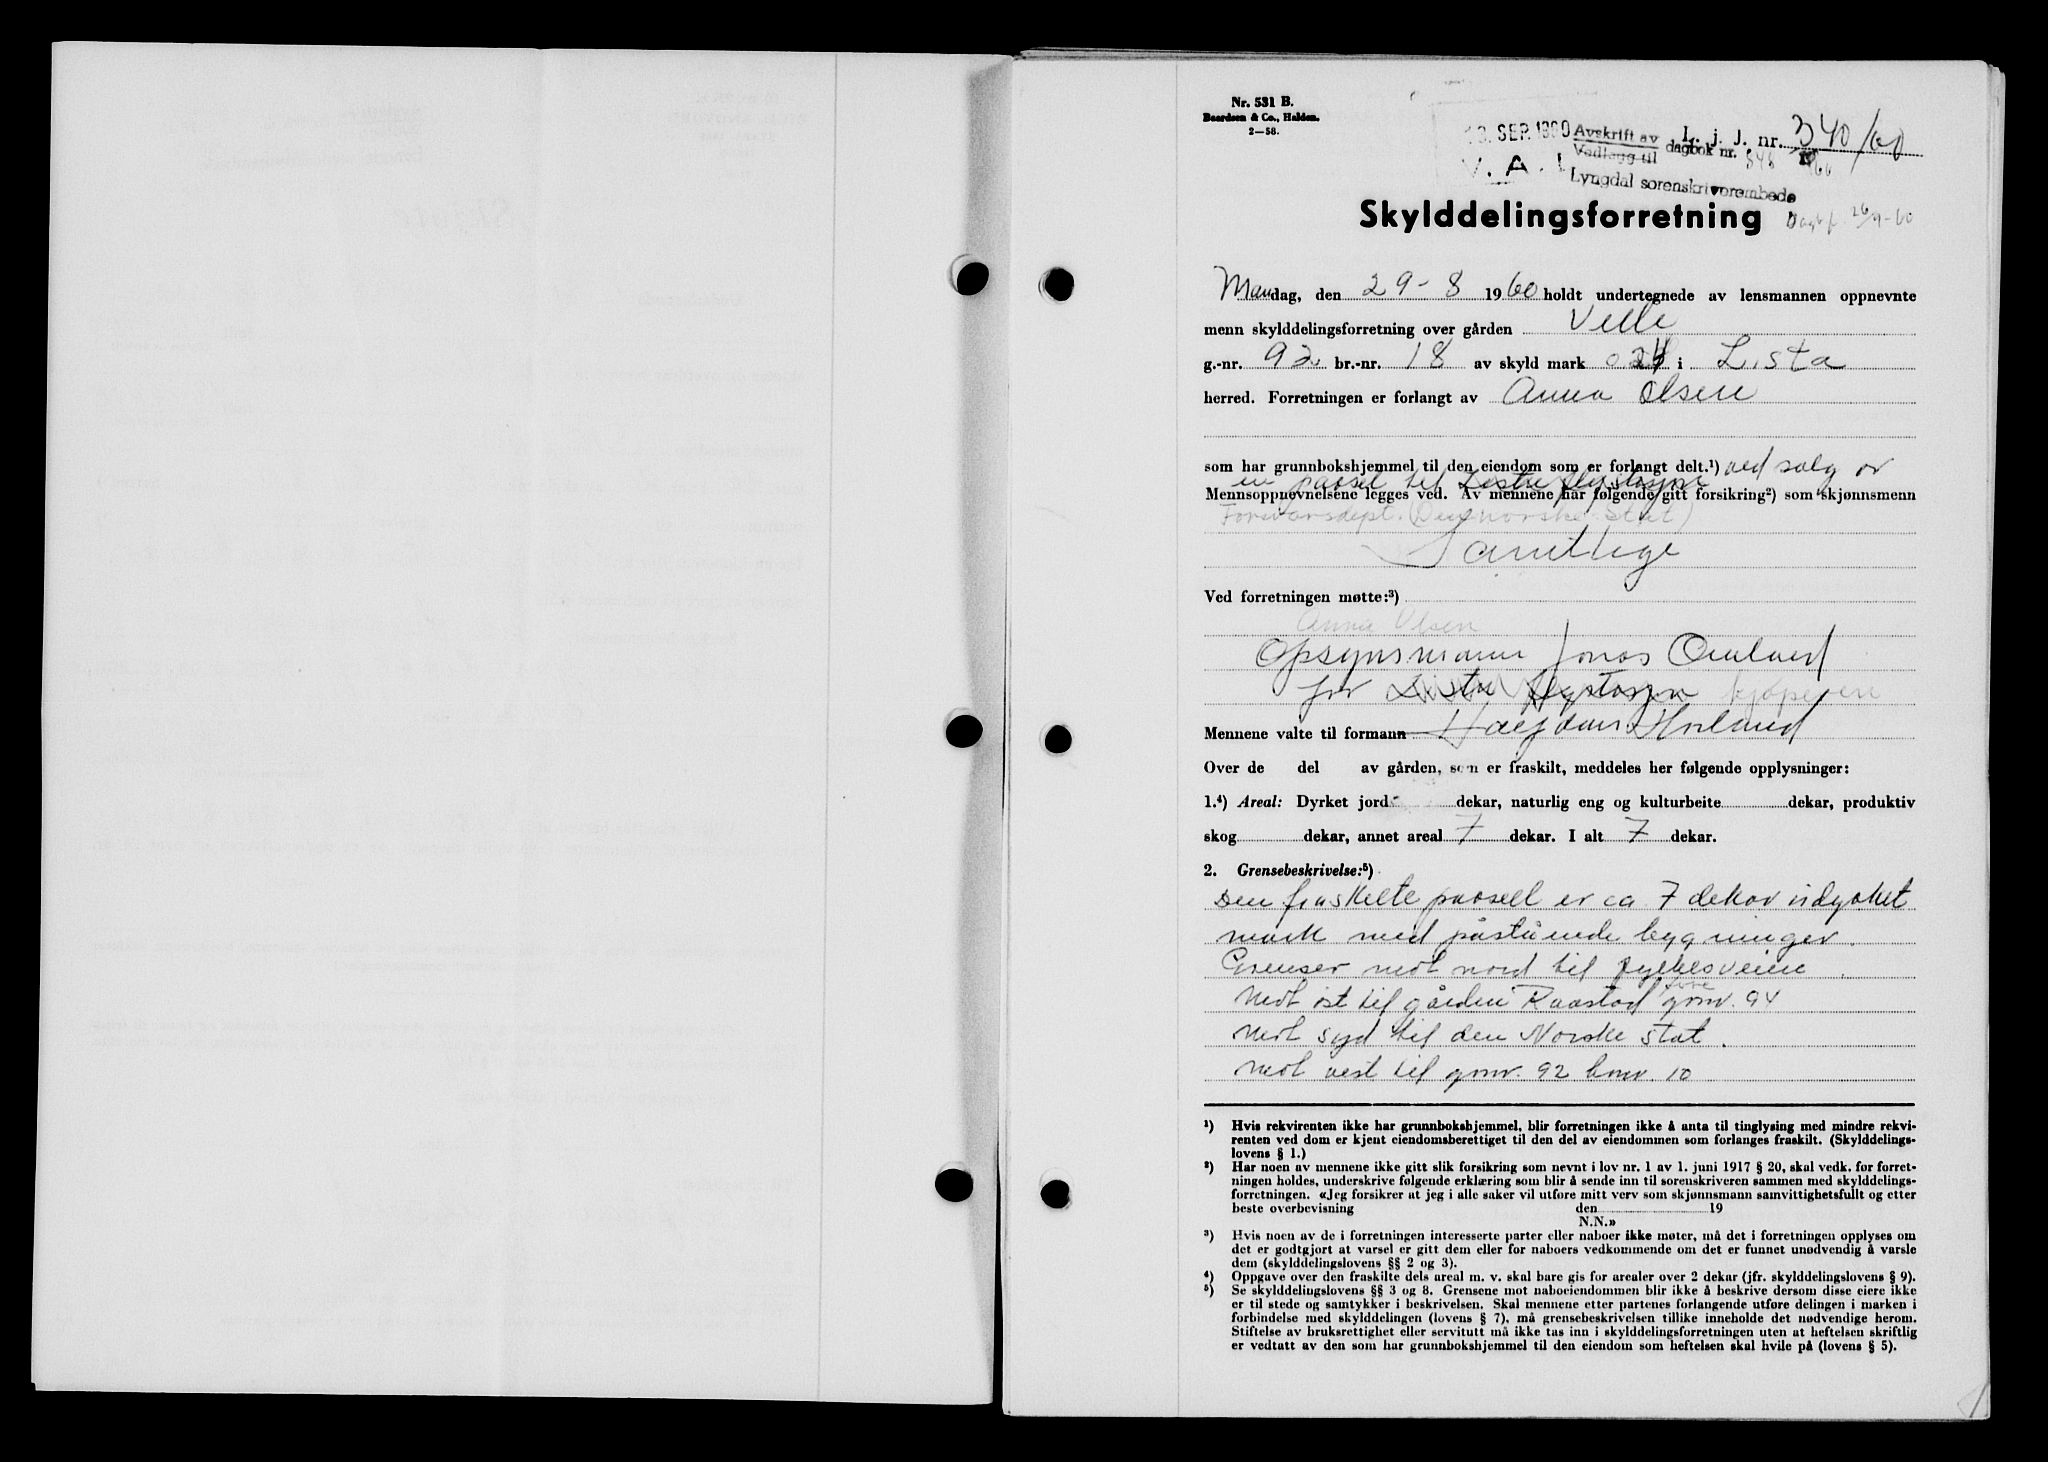 Nr. 531 B.
Beardsen & Co., Halden.
2–58.
13. SEP. 1960
V. A.
Avskrift av
Vedlegg til dagbok nr. 848 1960
Lyngdal sorenskriverembede
L. j. J. nr. 340/60
Skylddelingsforretning
Dagb.f. 26/9-60
Mandag, den 29-8 1960 holdt undertegnede av lensmannen oppnevnte
menn skylddelingsforretning over gården Velle
g.-nr. 92 br.-nr. 18 av skyld mark i Lista
herred. Forretningen er forlangt av Anna Olsen
som har grunnbokshjemmel til den eiendom som er forlangt delt.¹) ved salg av
en parsel til Lista flystasjon
Mennsoppnevnelsene legges ved. Av mennene har følgende gitt forsikring²) som skjønnsmenn
Forsvarsdept. (Den norske Stat)
Samtlige
Ved forretningen møtte:³)
Anna Olsen
Opsynsmann Jonas Omland
for Lista flystasjon kjøperen
Mennene valte til formann Halfdan Horland
Over de del av gården, som er fraskilt, meddeles her følgende opplysninger:
1.⁴) Areal: Dyrket jord - dekar, naturlig eng og kulturbeite dekar, produktiv
skog dekar, annet areal 7 dekar. I alt 7 dekar.
2. Grensebeskrivelse:⁵)
Den fraskilte parsell er ca 7 dekar udyrket
mark med påstående bygninger.
Grenser mot nord til fylkesveien.
Mot øst til gården Raastad gnr. 94
Mot syd til den Norske stat.
Mot vest til gnr. 92 bnr. 10
¹) Hvis rekvirenten ikke har grunnbokshjemmel, blir forretningen ikke å anta til tinglysing med mindre rekvi-
renten ved dom er kjent eiendomsberettiget til den del av eiendommen som forlanges fraskilt. (Skylddelings-
lovens § 1.)
²) Har noen av mennene ikke gitt slik forsikring som nevnt i lov nr. 1 av 1. juni 1917 § 20, skal vedk. før forret-
ningen holdes, underskrive følgende erklæring som blir å sende inn til sorenskriveren sammen med skylddelings-
forretningen. «Jeg forsikrer at jeg i alle saker vil utføre mitt verv som skjønnsmann samvittighetsfullt og etter
beste overbevisning den 19
N.N.»
³) Hvis noen av de i forretningen interesserte parter eller naboer ikke møter, må det i forretningen opplyses om
det er godtgjort at varsel er gitt dem eller for naboers vedkommende om det er funnet unødvendig å varsle
dem (skylddelingslovens §§ 2 og 3).
⁴) Oppgave over den fraskilte dels areal m. v. skal bare gis for arealer over 2 dekar (jfr. skylddelingslovens § 9).
⁵) Se skylddelingslovens §§ 3 og 8. Grensene mot naboeiendommen blir ikke å beskrive dersom disse eiere ikke
er til stede og samtykker i beskrivelsen. Skal mennene etter partenes forlangende utføre delingen i marken i
forbindelse med skylddelingen (lovens § 7), må grensebeskrivelsen tillike inneholde det nødvendige herom.
Stiftelse av bruksrettighet eller servitutt må ikke tas inn i skylddelingsforretningen uten at heftelsen skriftlig
er vedtatt av den som har grunnbokshjemmel til den eiendom som heftelsen skal hvile på (lovens § 5).